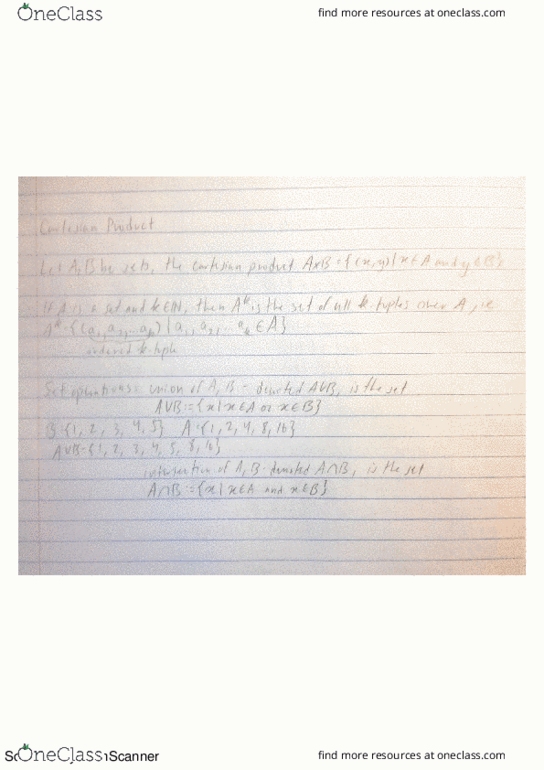 OneClass
find more resources at oneclass.com
Cartesian Product
Let A, B be sets, the cartesian product AxB = {(x,y) | x ∈ A and y ∈ B}
If A is a set and k ∈ IN, then Aᵏ is the set of all k-tuples over A, ie
Aᵏ = {(a₁, a₂, ... aₖ) | a₁, a₂, ... aₖ ∈ A}
ordered k-tuple
Set operations: union of A, B - denoted AUB, is the set
AUB = {x | x ∈ A or x ∈ B}
B = {1, 2, 3, 4, 5} A = {1, 2, 4, 8, 16}
AUB = {1, 2, 3, 4, 5, 8, 16}
intersection of A, B - denoted A∩B, is the set
A∩B = {x | x ∈ A and x ∈ B}
OneClass
Scanner
find more resources at oneclass.com